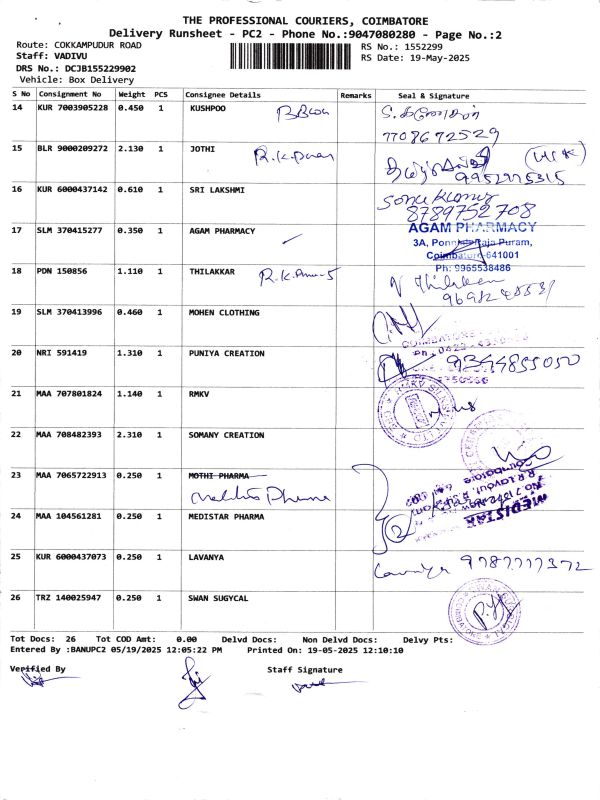 THE PROFESSIONAL COURIERS, COIMBATORE
Delivery Runsheet - PC2 - Phone No.:9047080280 - Page No.:2
Route: COKKAMPUDUR ROAD
RS No.: 1552299
Staff: VADIVU
RS Date: 19-May-2025
DRS No.: DCJB155229902
Vehicle: Box Delivery
S No Consignment No Weight PCS Consignee Details Remarks Seal & Signature
14 KUR 7003905228 0.450 1 KUSHPOO
7708672529
15 BLR 9000209272 2.130 1 JOTHI
9952775315
16 KUR 6000437142 0.610 1 SRI LAKSHMI
Sonu Kumar
8789752708
17 SLM 370415277 0.350 1 AGAM PHARMACY
AGAM PHARMACY
3A, Ponniah Raja Puram,
Coimbatore-641001
Ph: 9965538486
18 PDN 150856 1.110 1 THILAKKAR
19 SLM 370413996 0.460 1 MOHEN CLOTHING
20 NRI 591419 1.310 1 PUNIYA CREATION
9344855050
21 MAA 707801824 1.140 1 RMKV
22 MAA 708482393 2.310 1 SOMANY CREATION
23 MAA 7065722913 0.250 1 MOTHI PHARMA
24 MAA 104561281 0.250 1 MEDISTAR PHARMA
MEDISTAR
25 KUR 6000437073 0.250 1 LAVANYA
Lavanya 9787777372
26 TRZ 140025947 0.250 1 SWAN SUGYCAL
Tot Docs: 26 Tot COD Amt: 0.00 Delvd Docs: Non Delvd Docs: Delvy Pts:
Entered By :BANUPC2 05/19/2025 12:05:22 PM Printed On: 19-05-2025 12:10:10
Verified By
Staff Signature